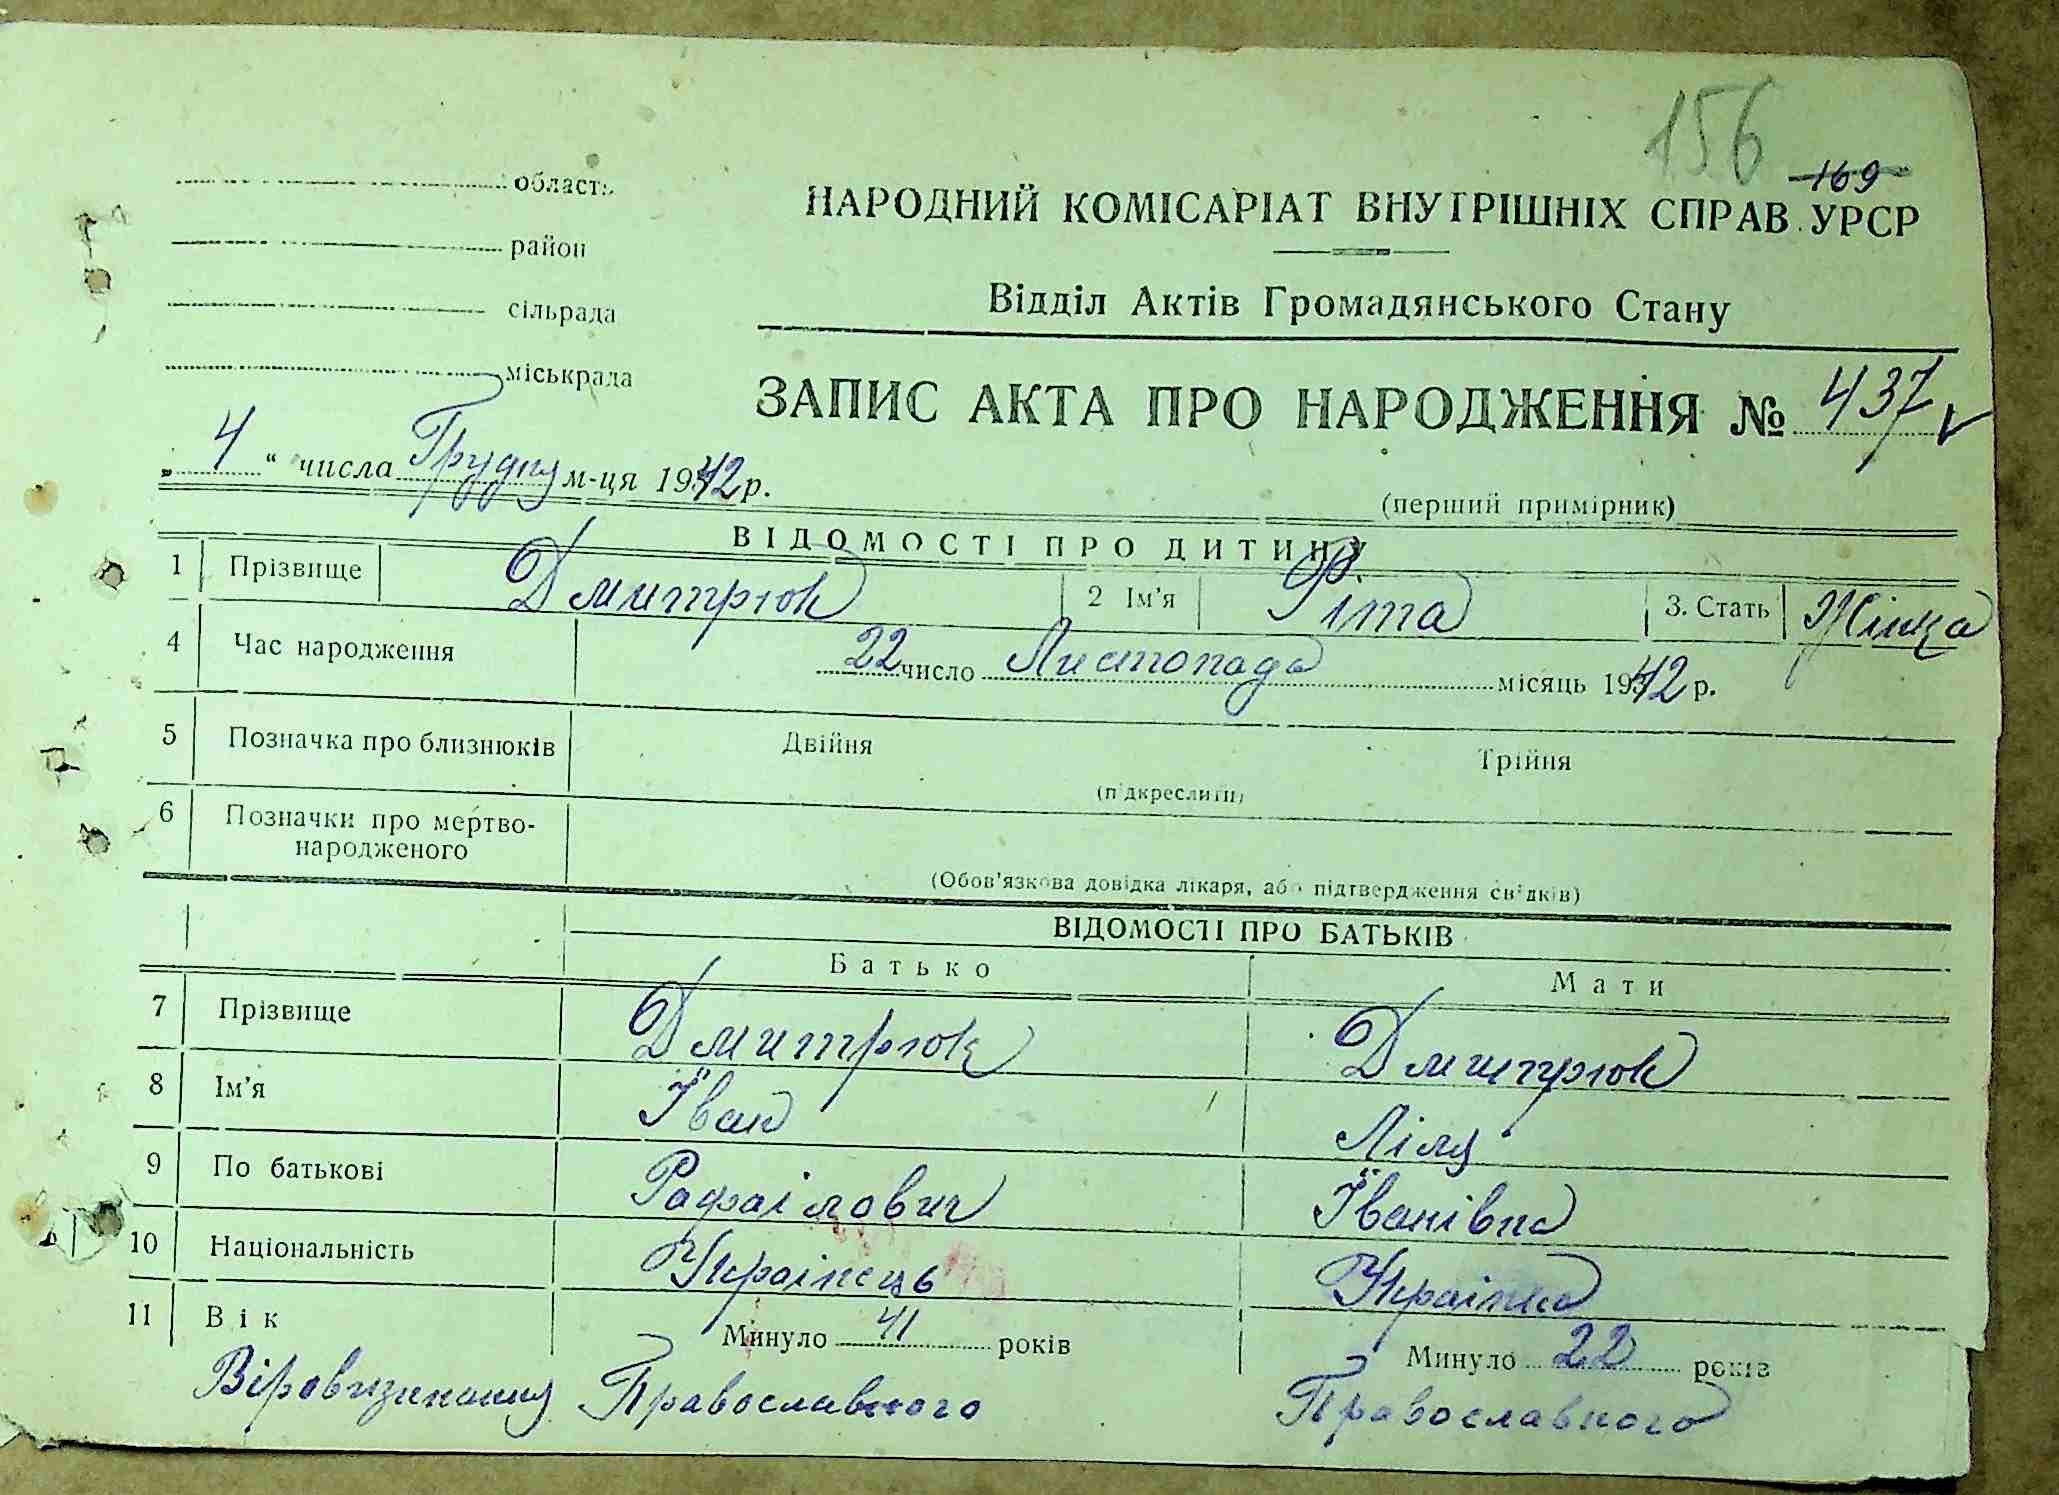 156
169
область
район
сільрада
міськрада
НАРОДНИЙ КОМІСАРІАТ ВНУТРІШНІХ СПРАВ УРСР
Відділ Актів Громадянського Стану
ЗАПИС АКТА ПРО НАРОДЖЕННЯ № 437
„ 4 “ числа Грудня м-ця 1942 р.
(перший примірник)
ВІДОМОСТІ ПРО ДИТИНУ
1 Прізвище Дмитрюк 2 Ім’я Ріта 3. Стать Жінка
4 Час народження 22 число Листопада місяць 1942 р.
5 Позначка про близнюків Двійня Трійня
(підкреслити)
6 Позначки про мертво-
народженого
(Обов’язкова довідка лікаря, або підтвердження свідків)
ВІДОМОСТІ ПРО БАТЬКІВ
Батько Мати
7 Прізвище Дмитрюк Дмитрюк
8 Ім’я Іван Ліля
9 По батькові Рафаілович Іванівна
10 Національність Украінець Украінка
11 Вік Минуло 41 років Минуло 22 років
Віровизнання Православного Православного